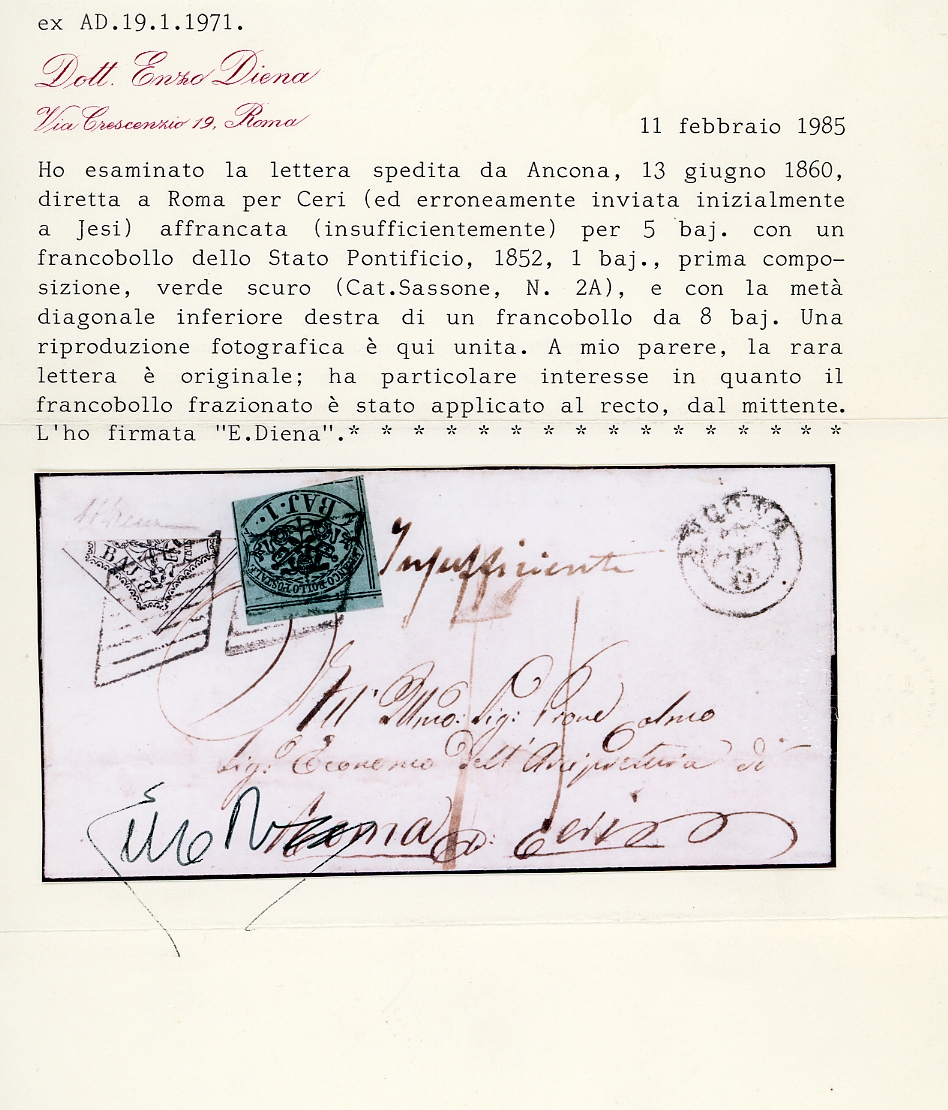 ex AD.19.1.1971.
Dott. Enzo Diena
Via Crescenzio 19, Roma
11 febbraio 1985
Ho esaminato la lettera spedita da Ancona, 13 giugno 1860,
diretta a Roma per Ceri (ed erroneamente inviata inizialmente
a Jesi) affrancata (insufficientemente) per 5 baj. con un
francobollo dello Stato Pontificio, 1852, 1 baj., prima compo-
sizione, verde scuro (Cat.Sassone, N. 2A), e con la metà
diagonale inferiore destra di un francobollo da 8 baj. Una
riproduzione fotografica è qui unita. A mio parere, la rara
lettera è originale; ha particolare interesse in quanto il
francobollo frazionato è stato applicato al recto, dal mittente.
L'ho firmata "E.Diena".* * * * * * * * * * * * * * * *
BAJ. 8
BAJ. 1.
FRANCO BOLLO POSTALE
Insufficiente
ANCONA
All' Illmo: Sig:
Sig: Economo dell' Arcipretura di
Roma p: Ceri